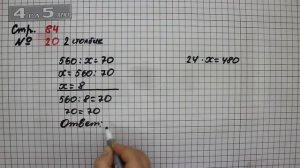 Стр. 84
№ 20 2 столбик
560 : x = 70
x = 560 : 70
x = 8
560 : 8 = 70
70 = 70
Ответ:
24 · x = 480